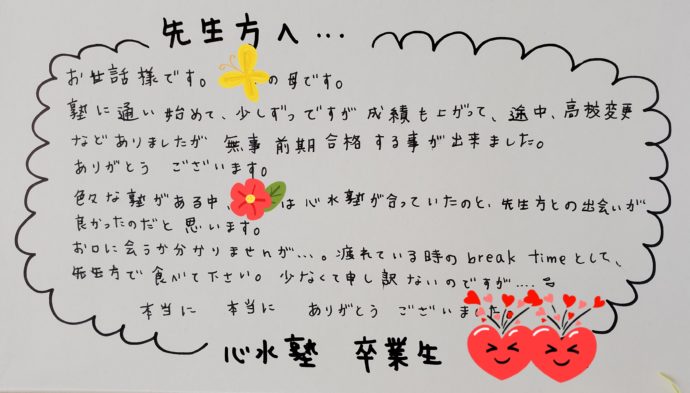 先生方へ…
お世話様です。 の母です。
塾に通い始めて、少しずつですが成績も上がって、途中、高校変更
などありましたが 無事前期合格する事が出来ました。
ありがとう ございます。
色々な塾がある中、 は心水塾が合っていたのと、先生方との出会いが
良かったのだと思います。
お口に会うか分かりませんが…。疲れている時のbreak timeとして、
先生方で食べて下さい。少なくて申し訳ないのですが‥‥
本当に 本当に ありがとう ございました。
心水塾 卒業生